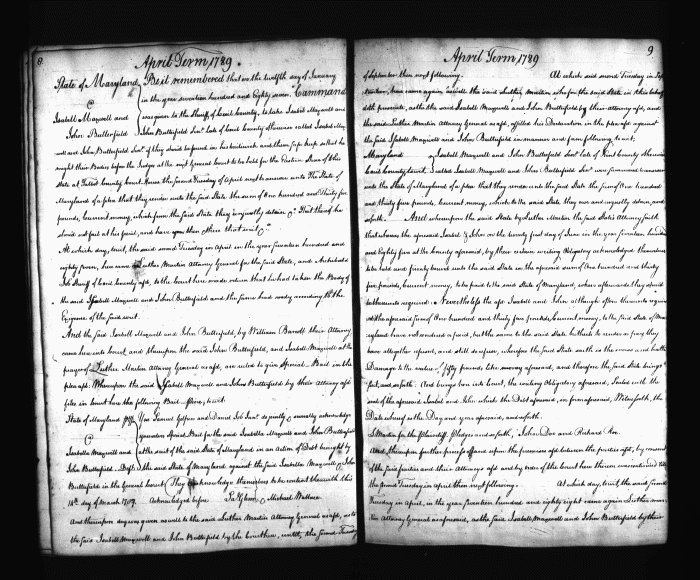 8.
April Term 1789.
State of Maryland, Be it remembered that on the twelfth day of January
in the year seventeen hundred and Eighty seven Command
was given to the Sheriff of Cecil County, to take Isabell Maxwell and
Isabell Maxwell and
John Butterfield
John Butterfield late of Cecil County otherwise called Isabell Max-
well and John Butterfield of they should be found in his bailiwick and them safe keep so that he
might have their Bodies before the Judges at the next General Court to be held for the Eastern Shore of this
State at Talbot County Court House the second Tuesday of April next to answer unto The State of
Maryland of a plea that they render unto the said State the sum of One hundred and thirty five
pounds, current money, which from the said State they unjustly detain &c. That this he
should not fail at his peril, and have you then & there that writ &c.
At which day, to wit, the said second Tuesday in April in the year Seventeen hundred and
eighty seven, here came Luther Martin Attorney General for the said State, and Archibald
Job Sheriff of Cecil County afsd, to the Court here made return that he had taken the Body of
the said Isabell Maxwell and John Butterfield and the same had ready according to the
Exigence of the said writ.
And the said Isabell Maxwell and John Butterfield, by William Barroll their Attorney
came here into Court and thereupon the said John Butterfield, and Isabell Maxwell at the
prayer of Luther Martin Attorney General as afsd, are ruled to give Special Bail in the
plea afsd. Whereupon the said Isabell Maxwell and John Butterfield by their Attorney afsd
files in Court here the following Bail to wit.
State of Maryland You Samuel Gilpin and Daniel do jointly & severally acknowledge
yourselves Special Bail for the said Isabella Maxwell and John Butterfield
Isabella Maxwell and at the suit of the said State of Maryland in an Action of Debt brought by
John Butterfield, Defts. the said State of Maryland against the said Isabella Maxwell & John
Butterfield in the General Court They acknowledge themselves to be content herewith this
14th. day of March 1789. Acknowledged before Michael Wallace
And thereupon day was given as well to the said Luther Martin Attorney General as afsd, as to
the said Isabell Maxwell and John Butterfield by the Court here, until the second Tuesday
9
April Term 1789
of September then next following. At which said second Tuesday in Sep-
tember, here came again, as well the said Luther Martin who for the said State in this behalf
doth prosecute, as the said Isabell Maxwell and John Butterfield by their attorney afsd, and
the said Luther Martin Attorney General as afsd, filed his Declaration in the plea afsd against
the said Isabell Maxwell and John Butterfield in manner and form following to wit;
Maryland Isabell Maxwell and John Butterfield late of Cecil County otherwise
Cecil County to wit, called Isabell Maxwell and John Butterfield were summoned to answer
unto the State of Maryland of a plea that they render unto the said State the sum of One hundred
and thirty five pounds, Current money, which to the said State they owe and unjustly detain, and
so forth. And whereupon the said State by Luther Martin the said State's Attorney saith
that whereas the aforesaid Isabell & John on the twenty first day of June in the year seventeen hundred
and Eighty five at the County aforesaid, by their certain writing Obligatory acknowledged themselves
to be held and firmly bound unto the said State in the aforesaid sum of One hundred and thirty
five pounds, Current money, to be paid to the said State of Maryland, when afterwards they should
be thereunto required. Nevertheless the afsd Isabell and John although often thereunto required
the aforesaid sum of One hundred and thirty five pounds, Current money, to the said State of Mary-
land have not rendered or paid, but the same to the said State hitherto to render or pay they
have altogether refused, and still do refuse, wherefore the said State saith is the worse and hath
Damage to the value of Fifty pounds like money aforesaid, and therefore the said State brings
suit, and so forth. And brings here into Court, the writing Obligatory aforesaid, Sealed with the
seal of the aforesaid Isabell and John which the Debt aforesaid, in form aforesaid, Witnesseth, the
Date whereof is the Day and year aforesaid, and so forth.
L. Martin for the Plaintiff. Pledges and so forth, John Doe and Richard Roe.
And thereupon further process of and upon the premises afsd between the parties afsd, by consent
of the said parties and their Attorneys afsd and by order of the Court here thereon continued until
the second Tuesday in April then next following. At which day, to wit, the said second
Tuesday in April, in the year Seventeen hundred and eighty eight came again Luther Mar-
tin Attorney General as aforesaid, as the said Isabell Maxwell and John Butterfield by their